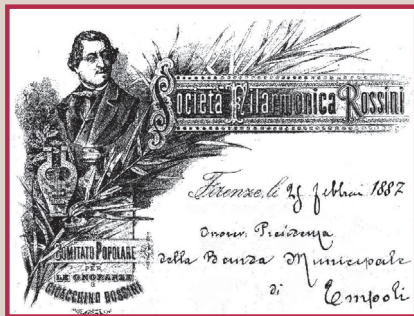 Società Filarmonica Rossini
COMITATO POPOLARE
PER
LE ONORANZE
A
GIOACCHINO ROSSINI
Firenze, li 25 febbrai 1887
Onorev. Presidenza
della Banda Municipale
di Empoli